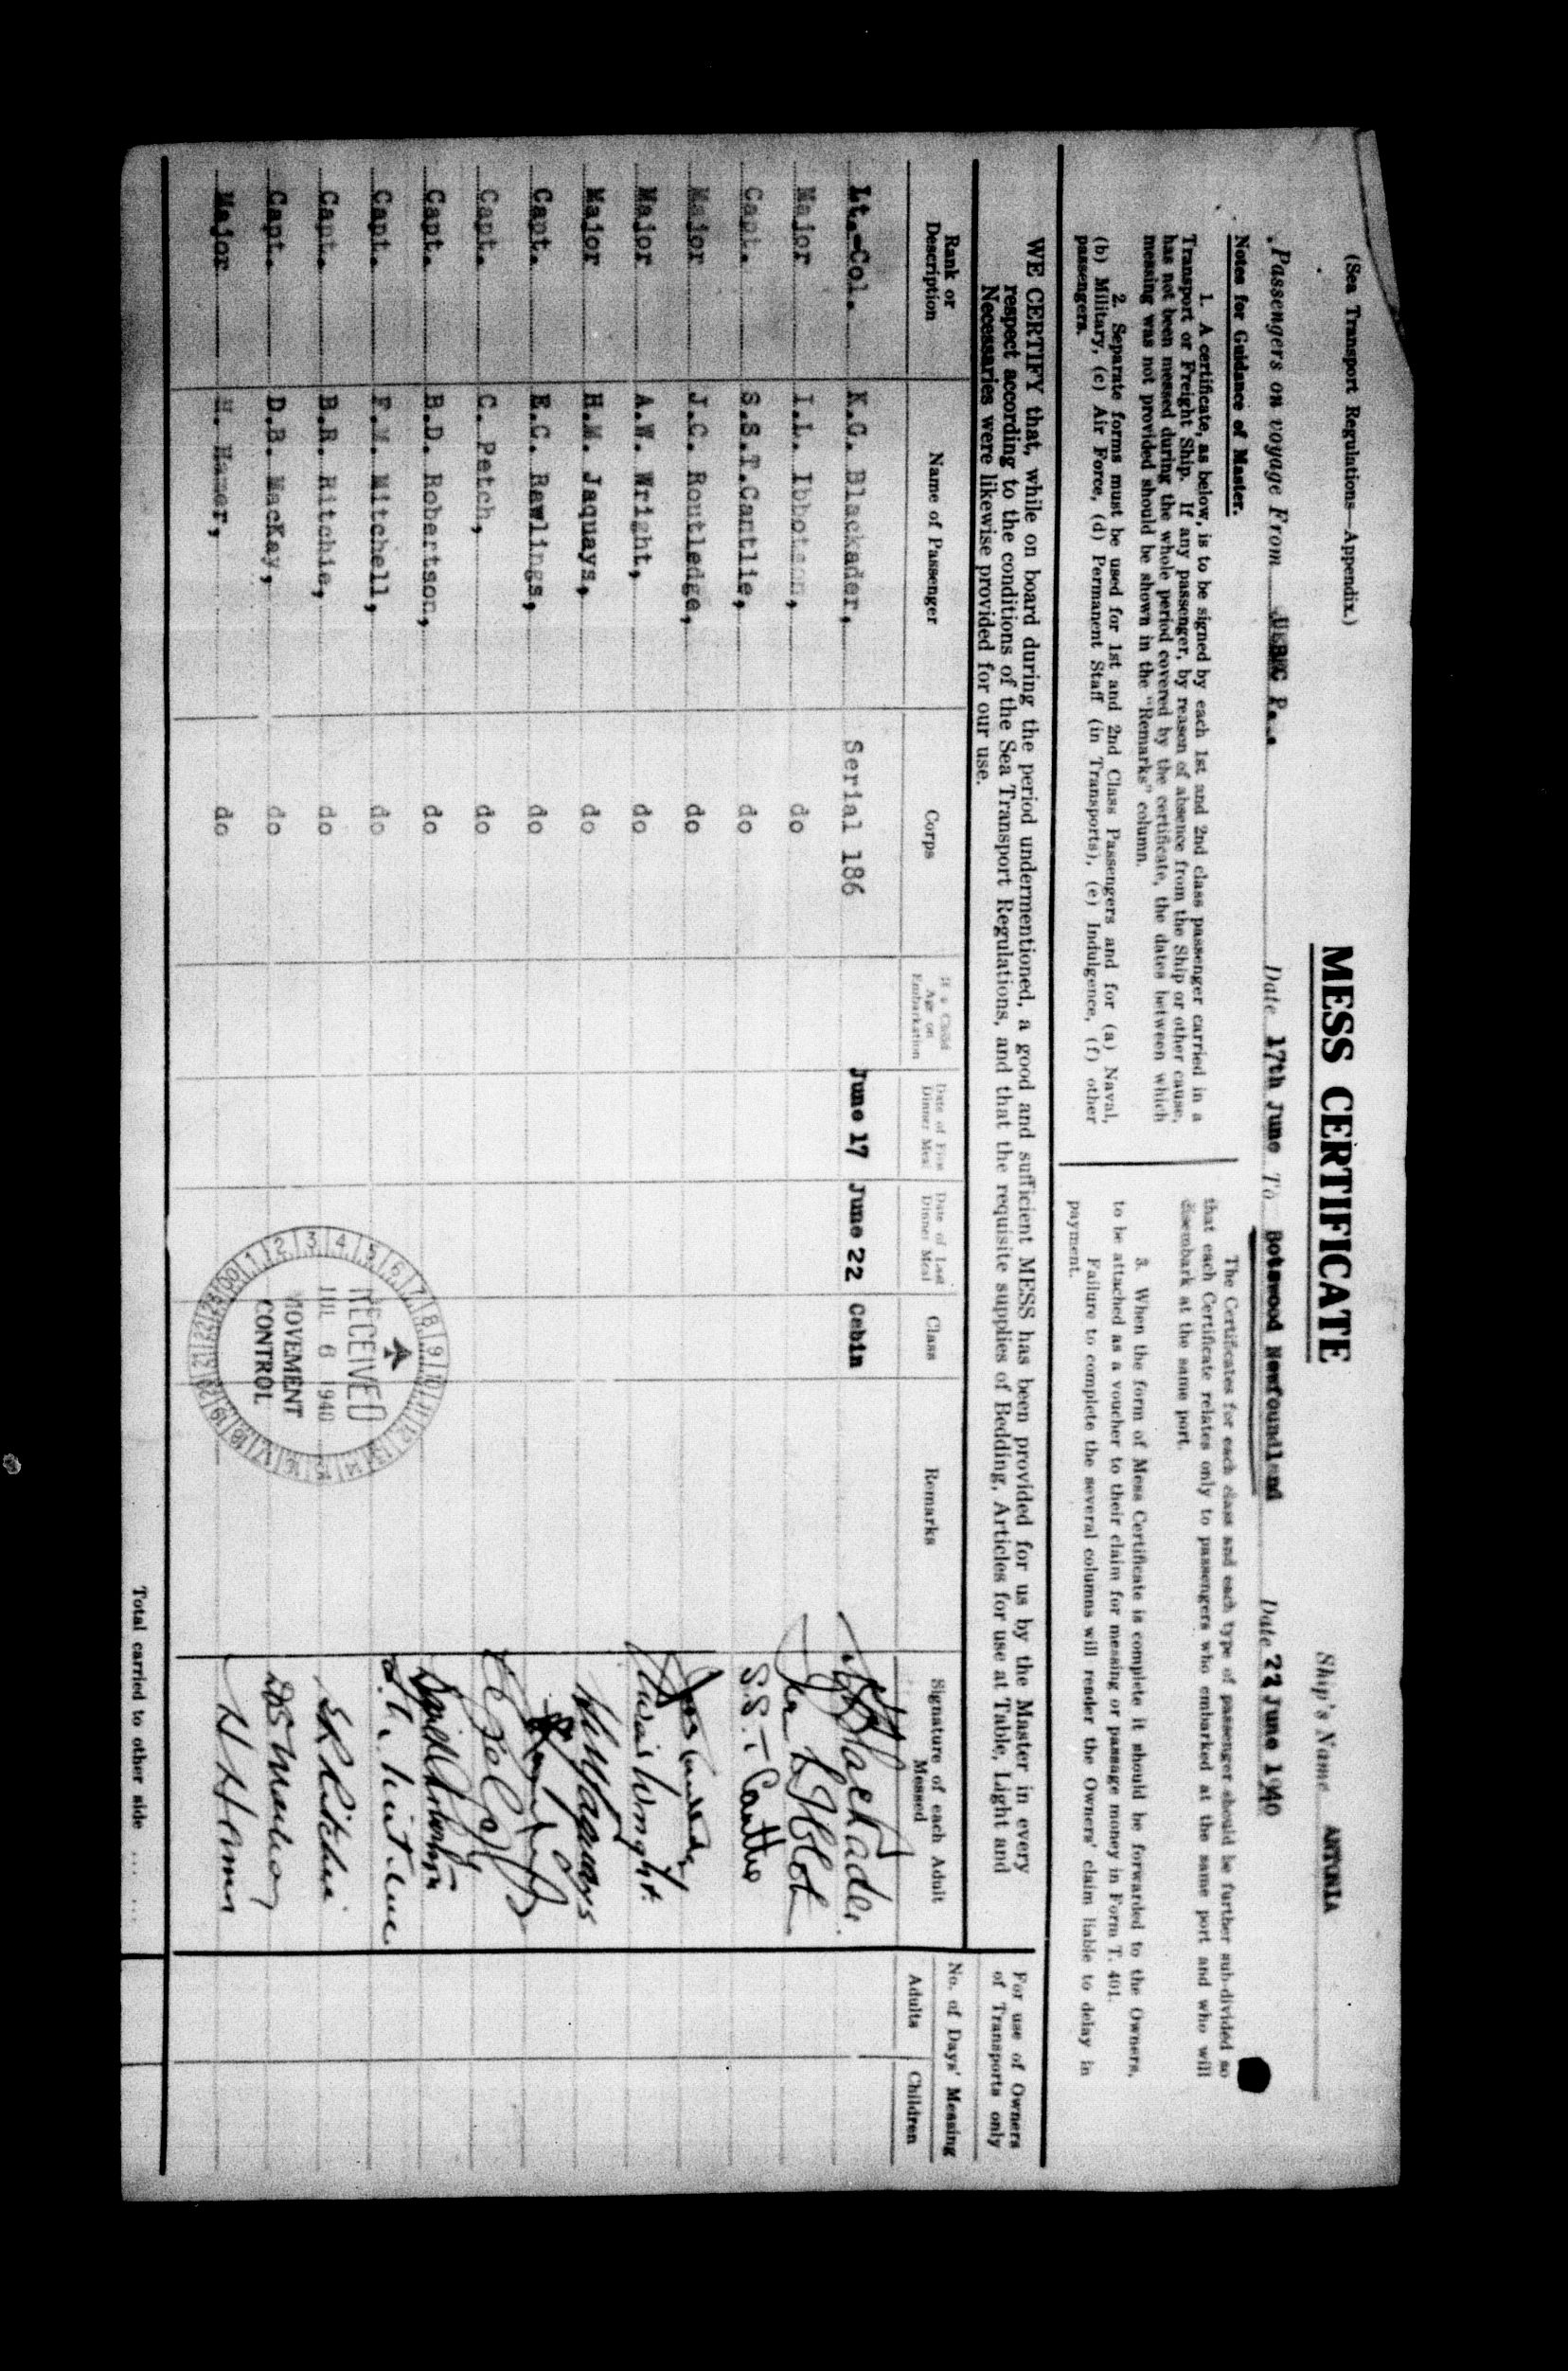 (Sea Transport Regulations—Appendix.)
MESS CERTIFICATE
Ship's Name ANTONIA
Passengers on voyage From Date 17th June To Botswood Newfoundland Date 22 June 1940
Notes for Guidance of Master.
1. A certificate, as below, is to be signed by each 1st and 2nd class passenger carried in a
Transport or Freight Ship. If any passenger, by reason of absence from the Ship or other cause,
has not been messed during the whole period covered by the certificate, the dates between which
messing was not provided should be shown in the "Remarks" column.
2. Separate forms must be used for 1st and 2nd Class Passengers and for (a) Naval,
(b) Military, (c) Air Force, (d) Permanent Staff (in Transports), (e) Indulgence, (f) other
passengers.
The Certificates for each class and each type of passenger should be further sub-divided so
that each Certificate relates only to passengers who embarked at the same port and who will
disembark at the same port.
3. When the form of Mess Certificate is complete it should be forwarded to the Owners,
to be attached as a voucher to their claim for messing or passage money in Form T. 401.
Failure to complete the several columns will render the Owners' claim liable to delay in
payment.
WE CERTIFY that, while on board during the period undermentioned, a good and sufficient MESS has been provided for us by the Master in every
respect according to the conditions of the Sea Transport Regulations, and that the requisite supplies of Bedding, Articles for use at Table, Light and
Necessaries were likewise provided for our use.
For use of Owners
of Transports only
Rank or
Description
Name of Passenger
Corps
If a Child
Age on
Embarkation
Date of First
Dinner Meal
Date of Last
Dinner Meal
Class
Remarks
Signature of each Adult
Messed
No. of Days' Messing
Adults
Children
Lt.-Col. K.G. Blackader, Serial 186 June 17 June 22 Cabin Blackader
Major I.L. Ibbotson, do
Capt. S.S.T.Cantlie, do S.S.T Cantlie
Major J.C. Routledge, do
Major A.W. Wright, do Wright
Major H.M. Jaquays, do HM Jaquays
Capt. E.C. Rawlings, do
Capt. C. Petch, do
Capt. B.D. Robertson, do
Capt. F.M. Mitchell, do
Capt. B.R. Ritchie, do Ritchie
Capt. D.B. MacKay, do
Major H. Hamer, do H Hamer
RECEIVED
JUL 6 1940
MOVEMENT
CONTROL
Total carried to other side ... ...